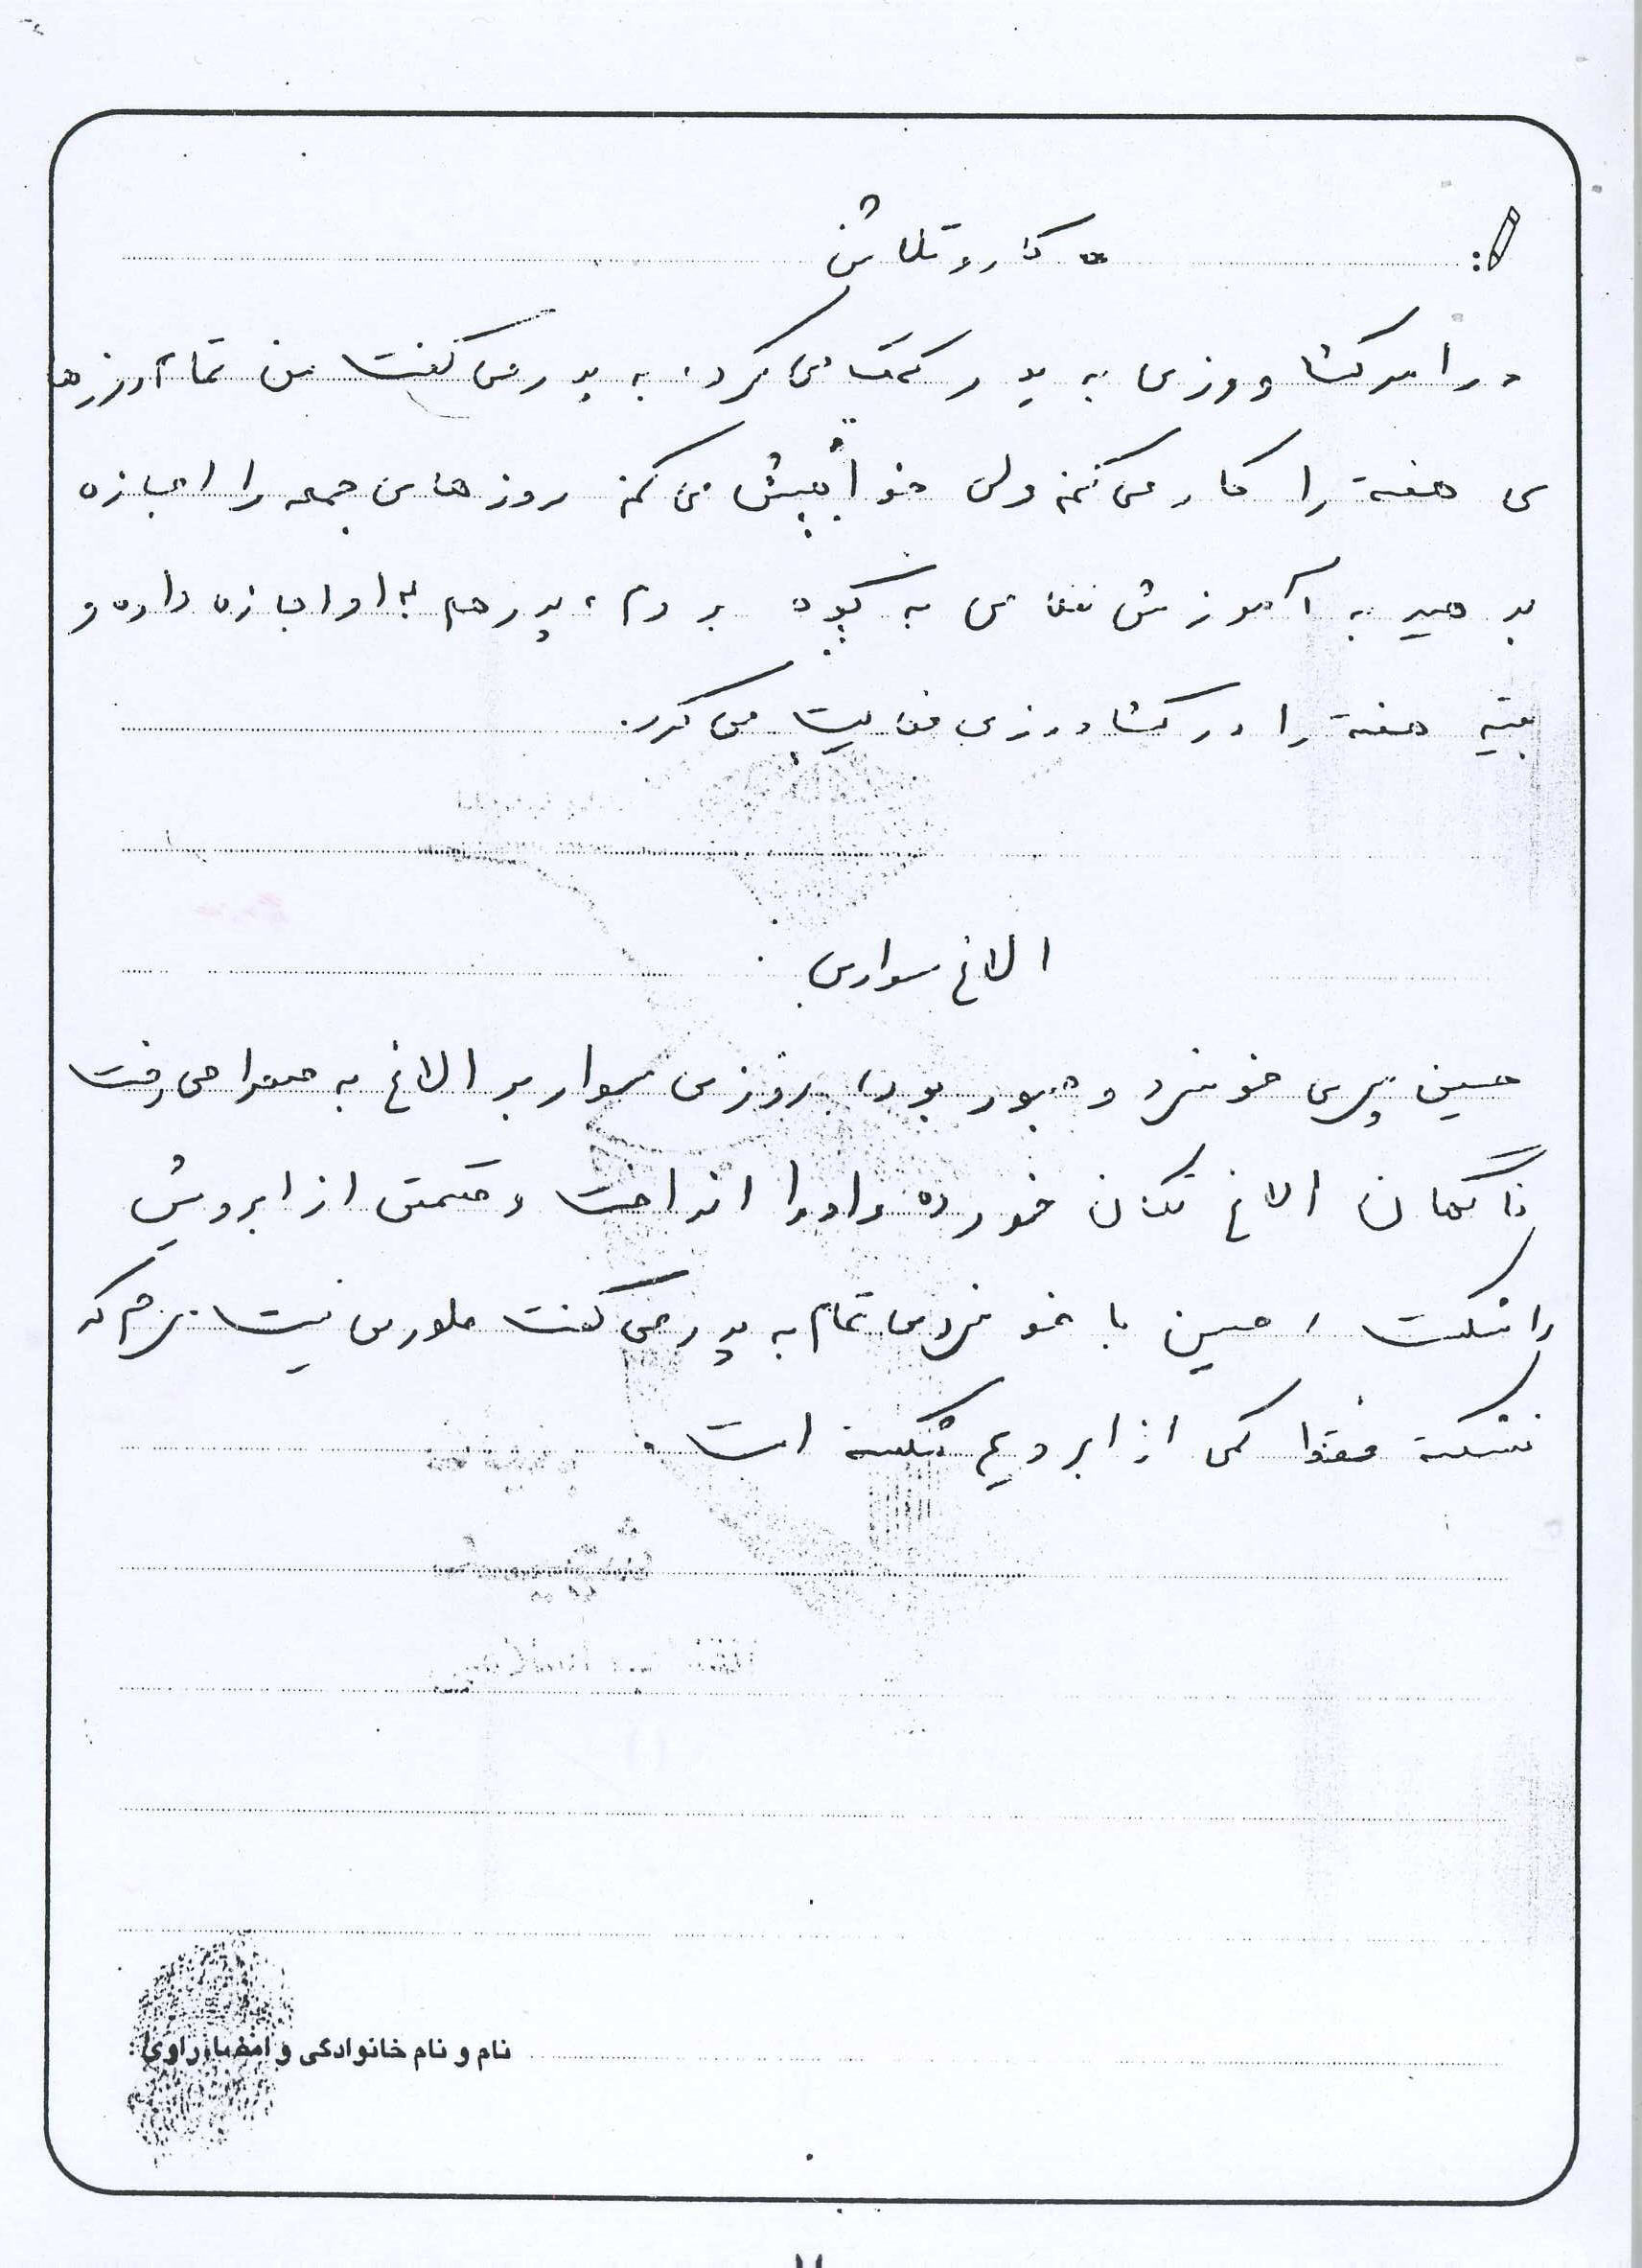 کار و تلاش
در امر کشاورزی به پدر کمک می کرد، به پدر می گفت من تمام روزها
ی هفته را کار می کنم ولی خواهش می کنم روزهای جمعه را اجازه
بدهید به آموزش نظامی به بروم، پدر هم به او اجازه داده و
بقیه هفته را در کشاورزی فعالیت می کرد.
الاغ سواری
حسین پسری خونسرد و صبور بود، روزی سوار بر الاغ به صحرا می رفت
ناگهان الاغ تکان خورده و او را انداخت و قسمتی از ابرویش
را شکست، حسین با خونسردی تمام به پدر می گفت طوری نیست سرم که
نشکسته فقط کمی از ابرویم شکسته است.
نام و نام خانوادگی و امضاء راوی: